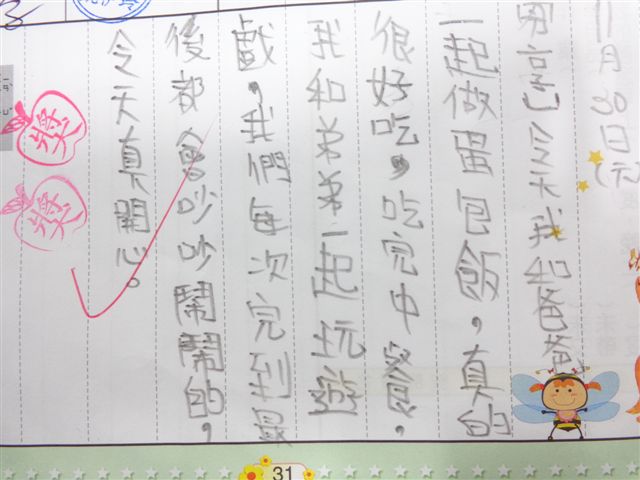 11月30日(
記今天我和爸爸
一起做蛋包飯，真的
很好吃，吃完中餐，
我和弟弟一起玩遊
戲，我們每次完到最
後都會吵吵鬧鬧的，
今天真開心。
獎
獎
31